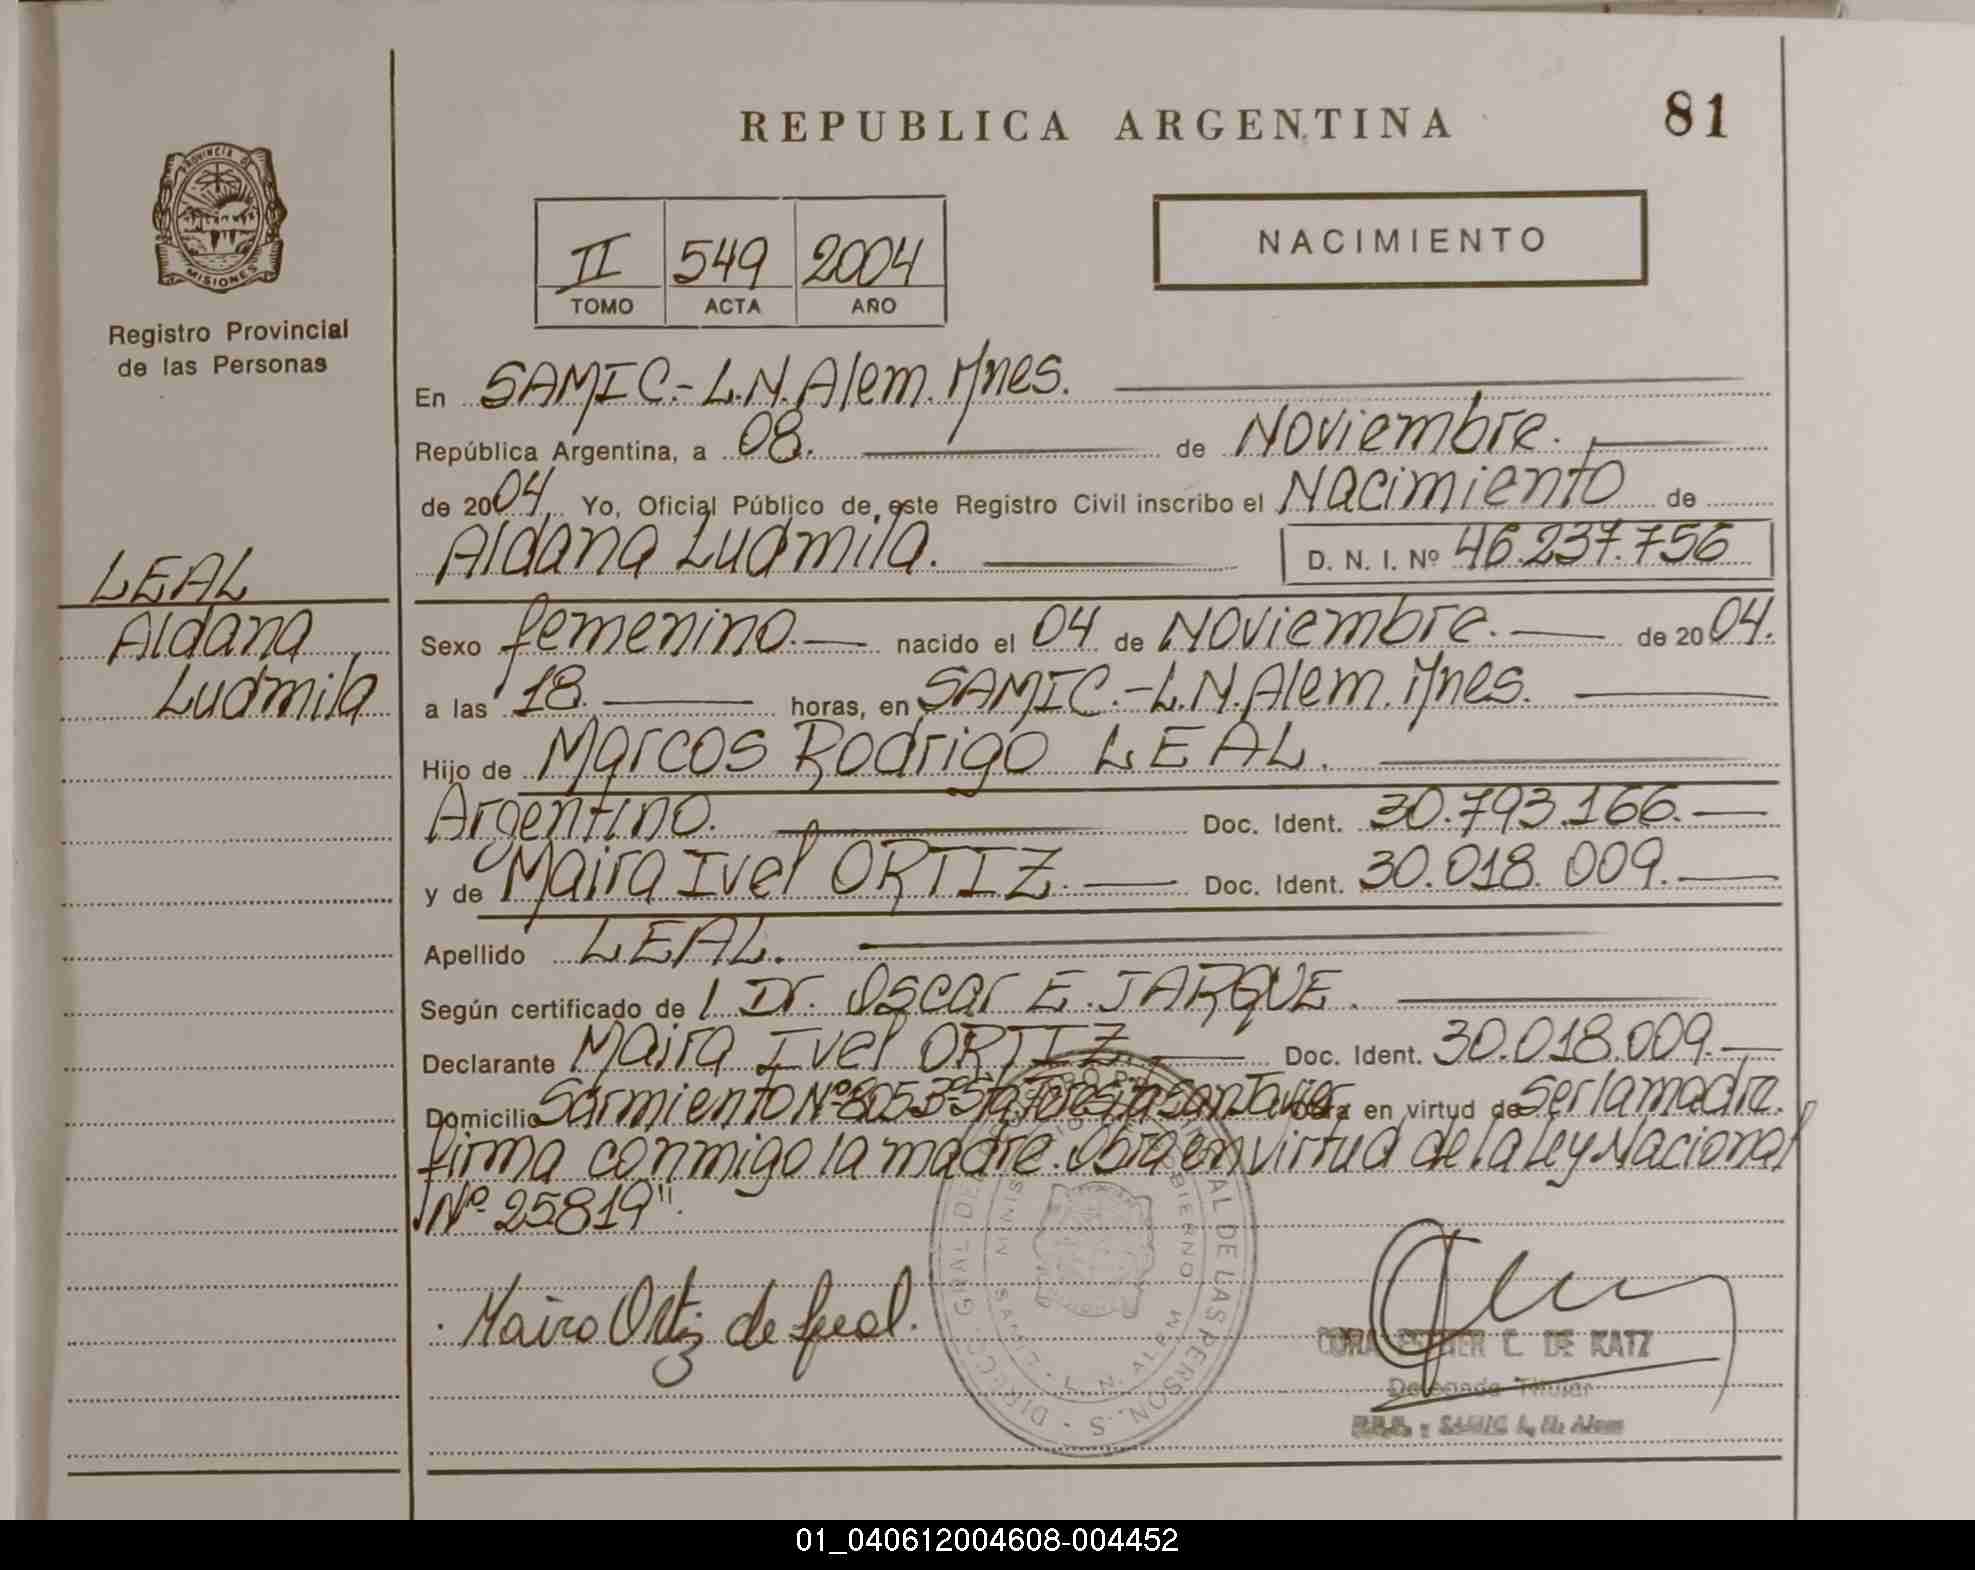 REPUBLICA ARGENTINA
81
PROVINCIA DE
MISIONES
Registro Provincial
de las Personas
II 549 2004
TOMO ACTA AÑO
NACIMIENTO
En SAMIC.-L.N.Alem.Mnes.
República Argentina, a 08. de Noviembre.
de 2004. Yo, Oficial Público de este Registro Civil inscribo el Nacimiento de
Aldana Ludmila. D. N. I. Nº 46.237.756
LEAL
Aldana
Ludmila
Sexo femenino. nacido el 04 de Noviembre. de 2004.
a las 18. horas, en SAMIC.-L.N.Alem.Mnes.
Hijo de Marcos Rodrigo LEAL.
Argentino. Doc. Ident. 30.793.166.
y de Maira Ivel ORTIZ. Doc. Ident. 30.018.009.
Apellido LEAL.
Según certificado de l Dr. Oscar E. JARQUE.
Declarante Maira Ivel ORTIZ. Doc. Ident. 30.018.009.
Domicilio Sarmiento Nº 8053 San Javier Obra en virtud de ser la madre.
firma conmigo la madre. Obra en virtud de la Ley Nacional
Nº 25819".
Maira Ortiz de Leal.
CORA ESTHER C. DE KATZ
Delegada Titular
SAMIC L. N. Alem
01_040612004608-004452